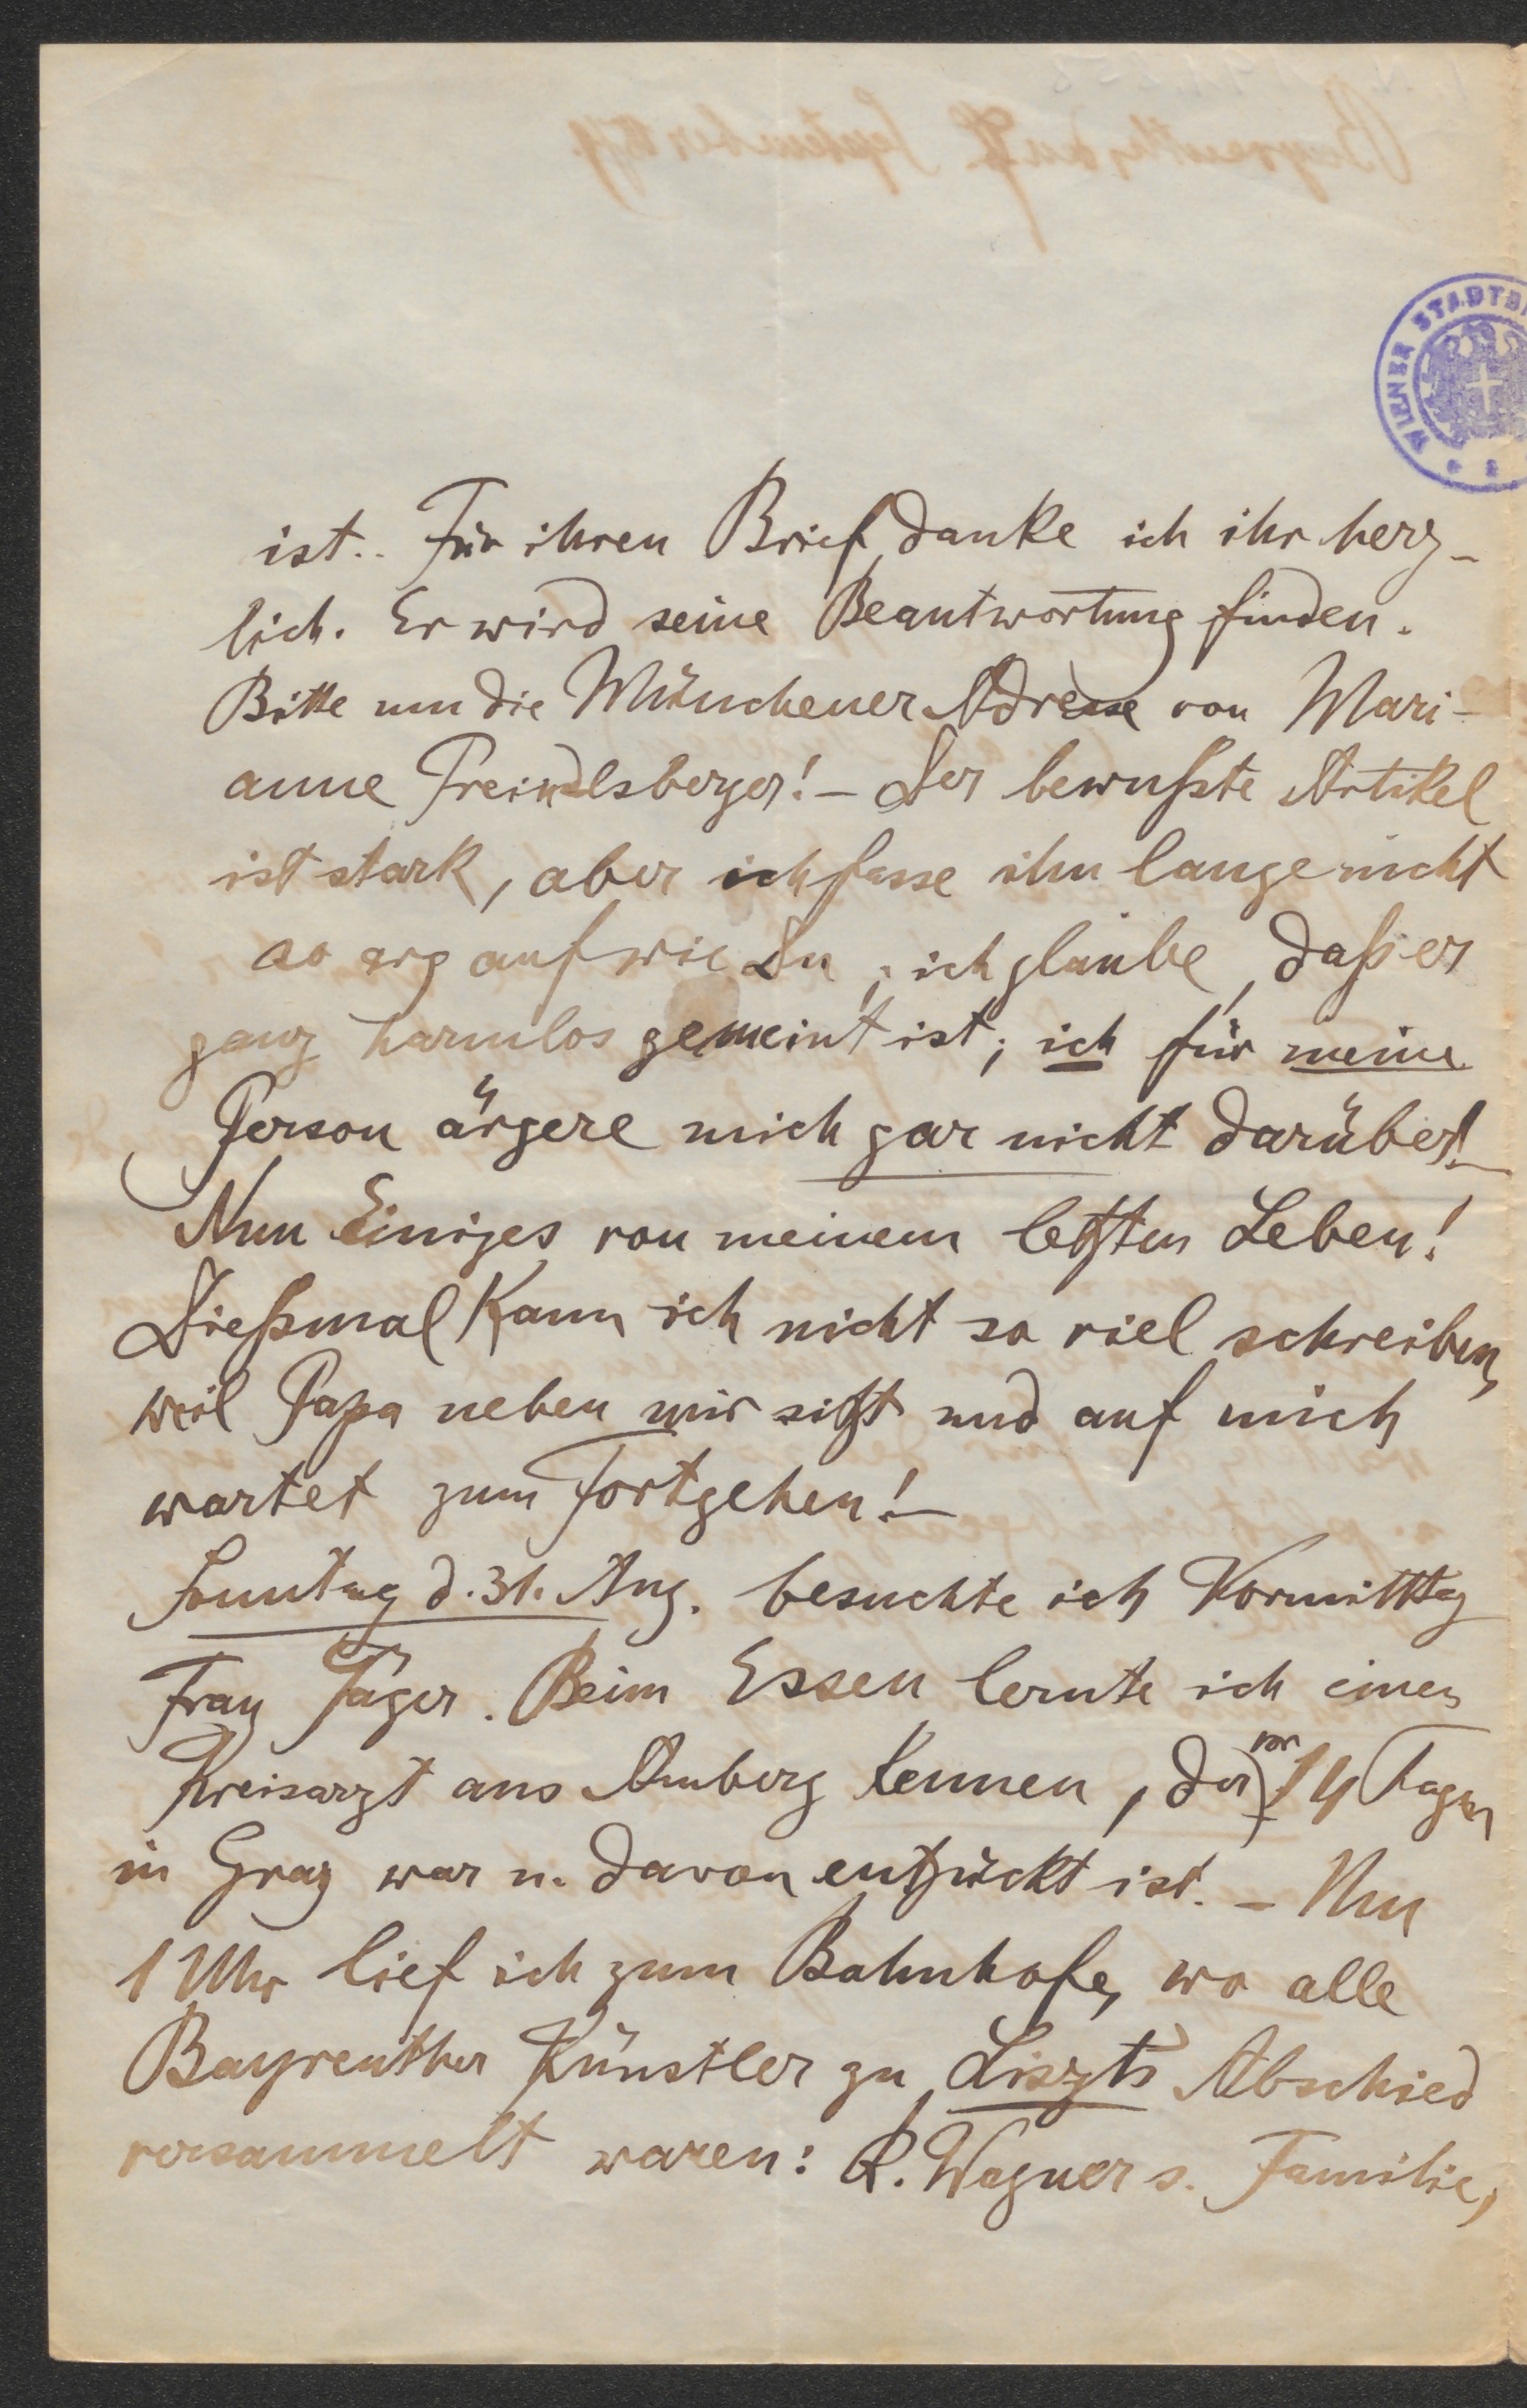 WIENER STADTB
ist.. Für ihren Brief danke ich ihr herz-
lich. Er wird seine Beantwortung finden.
Bitte um die Münchener Adresse von Mari-
anne Preindlsberger! - Der bewußte Artikel
ist stark, aber ich fasse ihn lange nicht
so arg auf wie Du; ich glaube, daß er
ganz harmlos gemeint ist; ich für meine
Person ärgere mich gar nicht darüber! -
Nun Einiges von meinem letzten Leben!
Dießmal kann ich nicht so viel schreiben,
weil Papa neben mir sitzt und auf mich
wartet zum Fortgehen! -
Sonntag d. 31. Aug. besuchte ich Vormittag
Frau Jäger. Beim Essen lernte ich einen
Kreisarzt aus Amberg kennen, der vor 14 Tagen
in Graz war u. davon entzückt ist. - Um
1 Uhr lief ich zum Bahnhofe, wo alle
Bayreuther Künstler zu Liszts Abschied
versammelt waren: R. Wagner s. Familie,